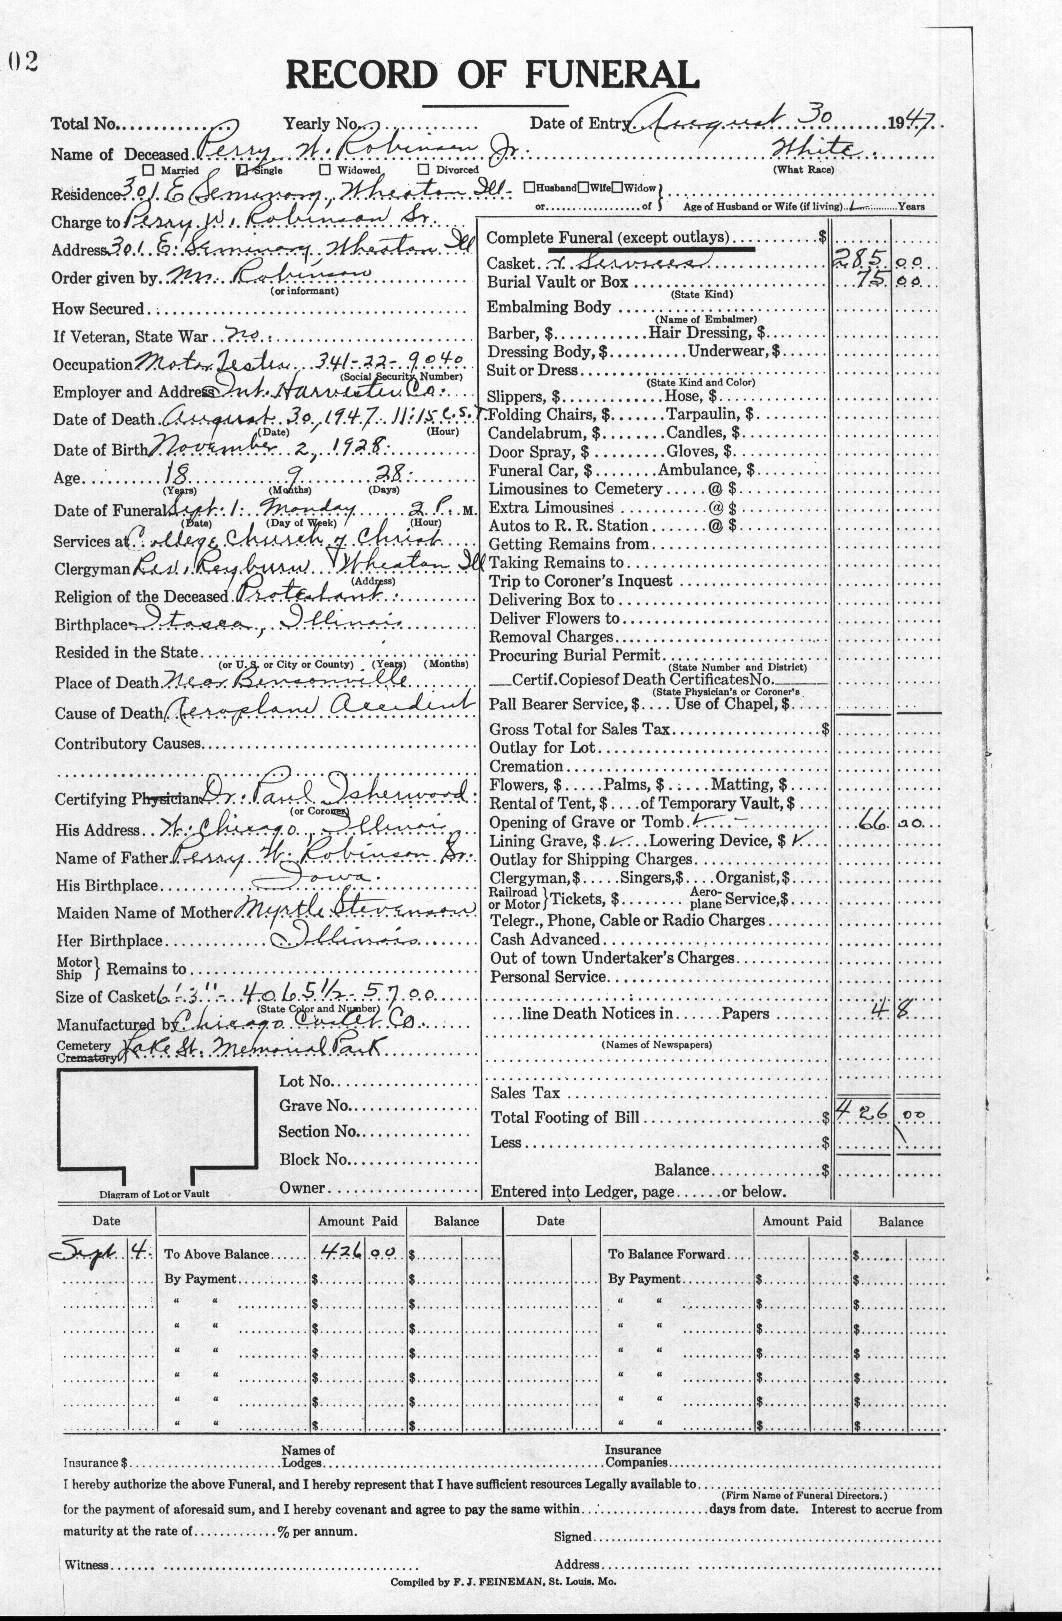 02
RECORD OF FUNERAL
Total No. Yearly No. Date of Entry August 30 1947.
Name of Deceased Perry W. Robinson Jr. White.
☐ Married ☑ Single ☐ Widowed ☐ Divorced (What Race)
Residence 301 E Seminary, Wheaton Ill. ☐Husband☐Wife☐Widow
or of Age of Husband or Wife (if living) Years
Charge to Perry W. Robinson Sr.
Address 301 E. Seminary Wheaton Ill
Order given by Mr. Robinson
(or informant)
How Secured
If Veteran, State War No.
Occupation Motor Tester 341-22-9040
(Social Security Number)
Employer and Address Int. Harvester Co.
Date of Death August 30, 1947 11:15 C.S.T.
(Date) (Hour)
Date of Birth November 2, 1928
Age 18 9 28
(Years) (Months) (Days)
Date of Funeral Sept. 1. Monday 2 P. M.
(Date) (Day of Week) (Hour)
Services at College Church of Christ
Clergyman Rev. Reyburn Wheaton Ill
(Address)
Religion of the Deceased Protestant
Birthplace Itasca, Illinois
Resided in the State
(or U. S. or City or County) (Years) (Months)
Place of Death Near Bensonville
Cause of Death Aeroplane Accident
Contributory Causes
Certifying Physician Dr. Paul Isherwood
(or Coroner)
His Address W. Chicago, Illinois
Name of Father Perry W. Robinson Sr.
His Birthplace Iowa.
Maiden Name of Mother Myrtle Stevenson
Her Birthplace Illinois
Motor
Ship } Remains to
Size of Casket 6'-3"- 4065½-5700
(State Color and Number)
Manufactured by Chicago Casket Co.
Cemetery
Crematory } Lake St. Memorial Park
Lot No.
Grave No.
Section No.
Block No.
Owner
Diagram of Lot or Vault
Complete Funeral (except outlays) $
Casket & Services 285 00
Burial Vault or Box 75 00
(State Kind)
Embalming Body
(Name of Embalmer)
Barber, $ Hair Dressing, $
Dressing Body, $ Underwear, $
Suit or Dress
(State Kind and Color)
Slippers, $ Hose, $
Folding Chairs, $ Tarpaulin, $
Candelabrum, $ Candles, $
Door Spray, $ Gloves, $
Funeral Car, $ Ambulance, $
Limousines to Cemetery @ $
Extra Limousines @ $
Autos to R. R. Station @ $
Getting Remains from
Taking Remains to
Trip to Coroner's Inquest
Delivering Box to
Deliver Flowers to
Removal Charges
Procuring Burial Permit
(State Number and District)
Certif. Copies of Death Certificates No.
(State Physician's or Coroner's
Pall Bearer Service, $ Use of Chapel, $
Gross Total for Sales Tax $
Outlay for Lot
Cremation
Flowers, $ Palms, $ Matting, $
Rental of Tent, $ of Temporary Vault, $
Opening of Grave or Tomb ✓ 66 00
Lining Grave, $ ✓ Lowering Device, $ ✓
Outlay for Shipping Charges
Clergyman, $ Singers, $ Organist, $
Railroad
or Motor } Tickets, $ Aero-
plane Service, $
Telegr., Phone, Cable or Radio Charges
Cash Advanced
Out of town Undertaker's Charges
Personal Service
line Death Notices in Papers 4 8
(Names of Newspapers)
Sales Tax
Total Footing of Bill $ 426 00
Less $
Balance $
Entered into Ledger, page or below.
Date Amount Paid Balance Date Amount Paid Balance
Sept 4. To Above Balance 426 00 $ To Balance Forward $
By Payment $ $ By Payment $ $
“ “ $ $ “ “ $ $
“ “ $ $ “ “ $ $
“ “ $ $ “ “ $ $
“ “ $ $ “ “ $ $
“ “ $ $ “ “ $ $
“ “ $ $ “ “ $ $
Insurance $ Names of Lodges Insurance Companies
I hereby authorize the above Funeral, and I hereby represent that I have sufficient resources Legally available to
(Firm Name of Funeral Directors.)
for the payment of aforesaid sum, and I hereby covenant and agree to pay the same within days from date. Interest to accrue from
maturity at the rate of % per annum.
Signed
Witness Address
Compiled by F. J. FEINEMAN, St. Louis. Mo.